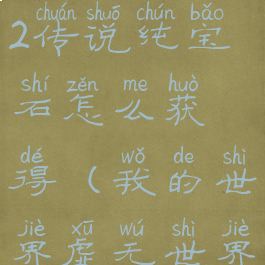 chuán shuō chún bǎo
2传说纯宝
shí zěn me huò
石怎么获
dé wǒ de shì
得（我的世
jiè xū wú shì jiè
界虚无世界